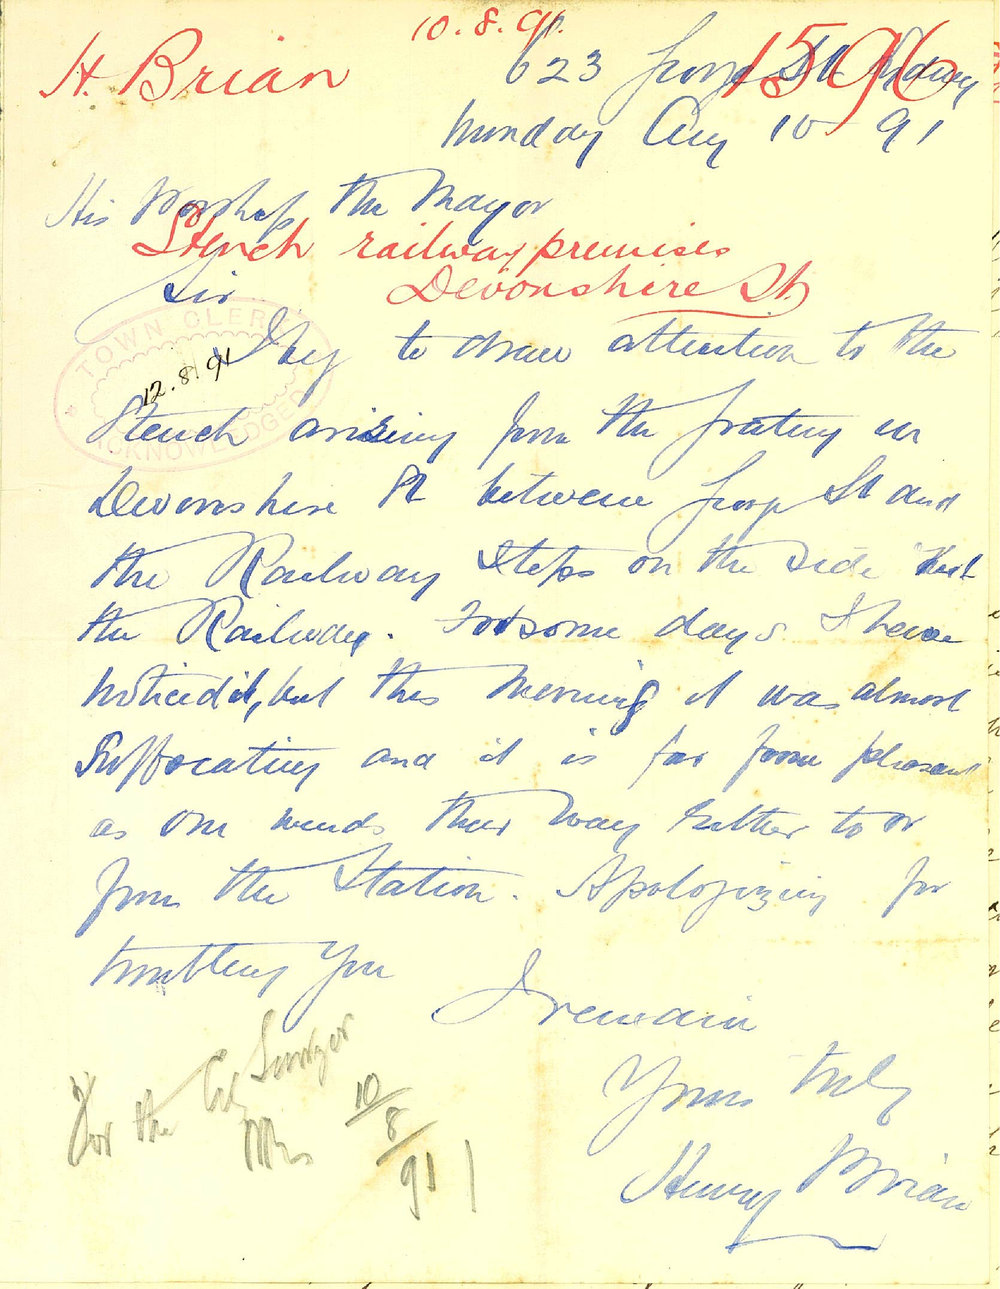 10.8.91.
H. Brian
1596
623 George St Sydney
Monday Aug 10 91
His Worship the Mayor
Stench railway premises
Devonshire St.
Sir
TOWN CLERK
ACKNOWLEDGED
12.8.91
I beg to draw attention to the
Stench arising from the grating in
Devonshire St between George St and
the Railway Steps on the side next
the Railway. For some days I have
noticed it, but this morning it was almost
Suffocating and it is far from pleasant
as one wends their way either to or
from the Station. Apologizing for
troubling you
I remain
Yours truly
Henry Brian
For the City
10/8/91